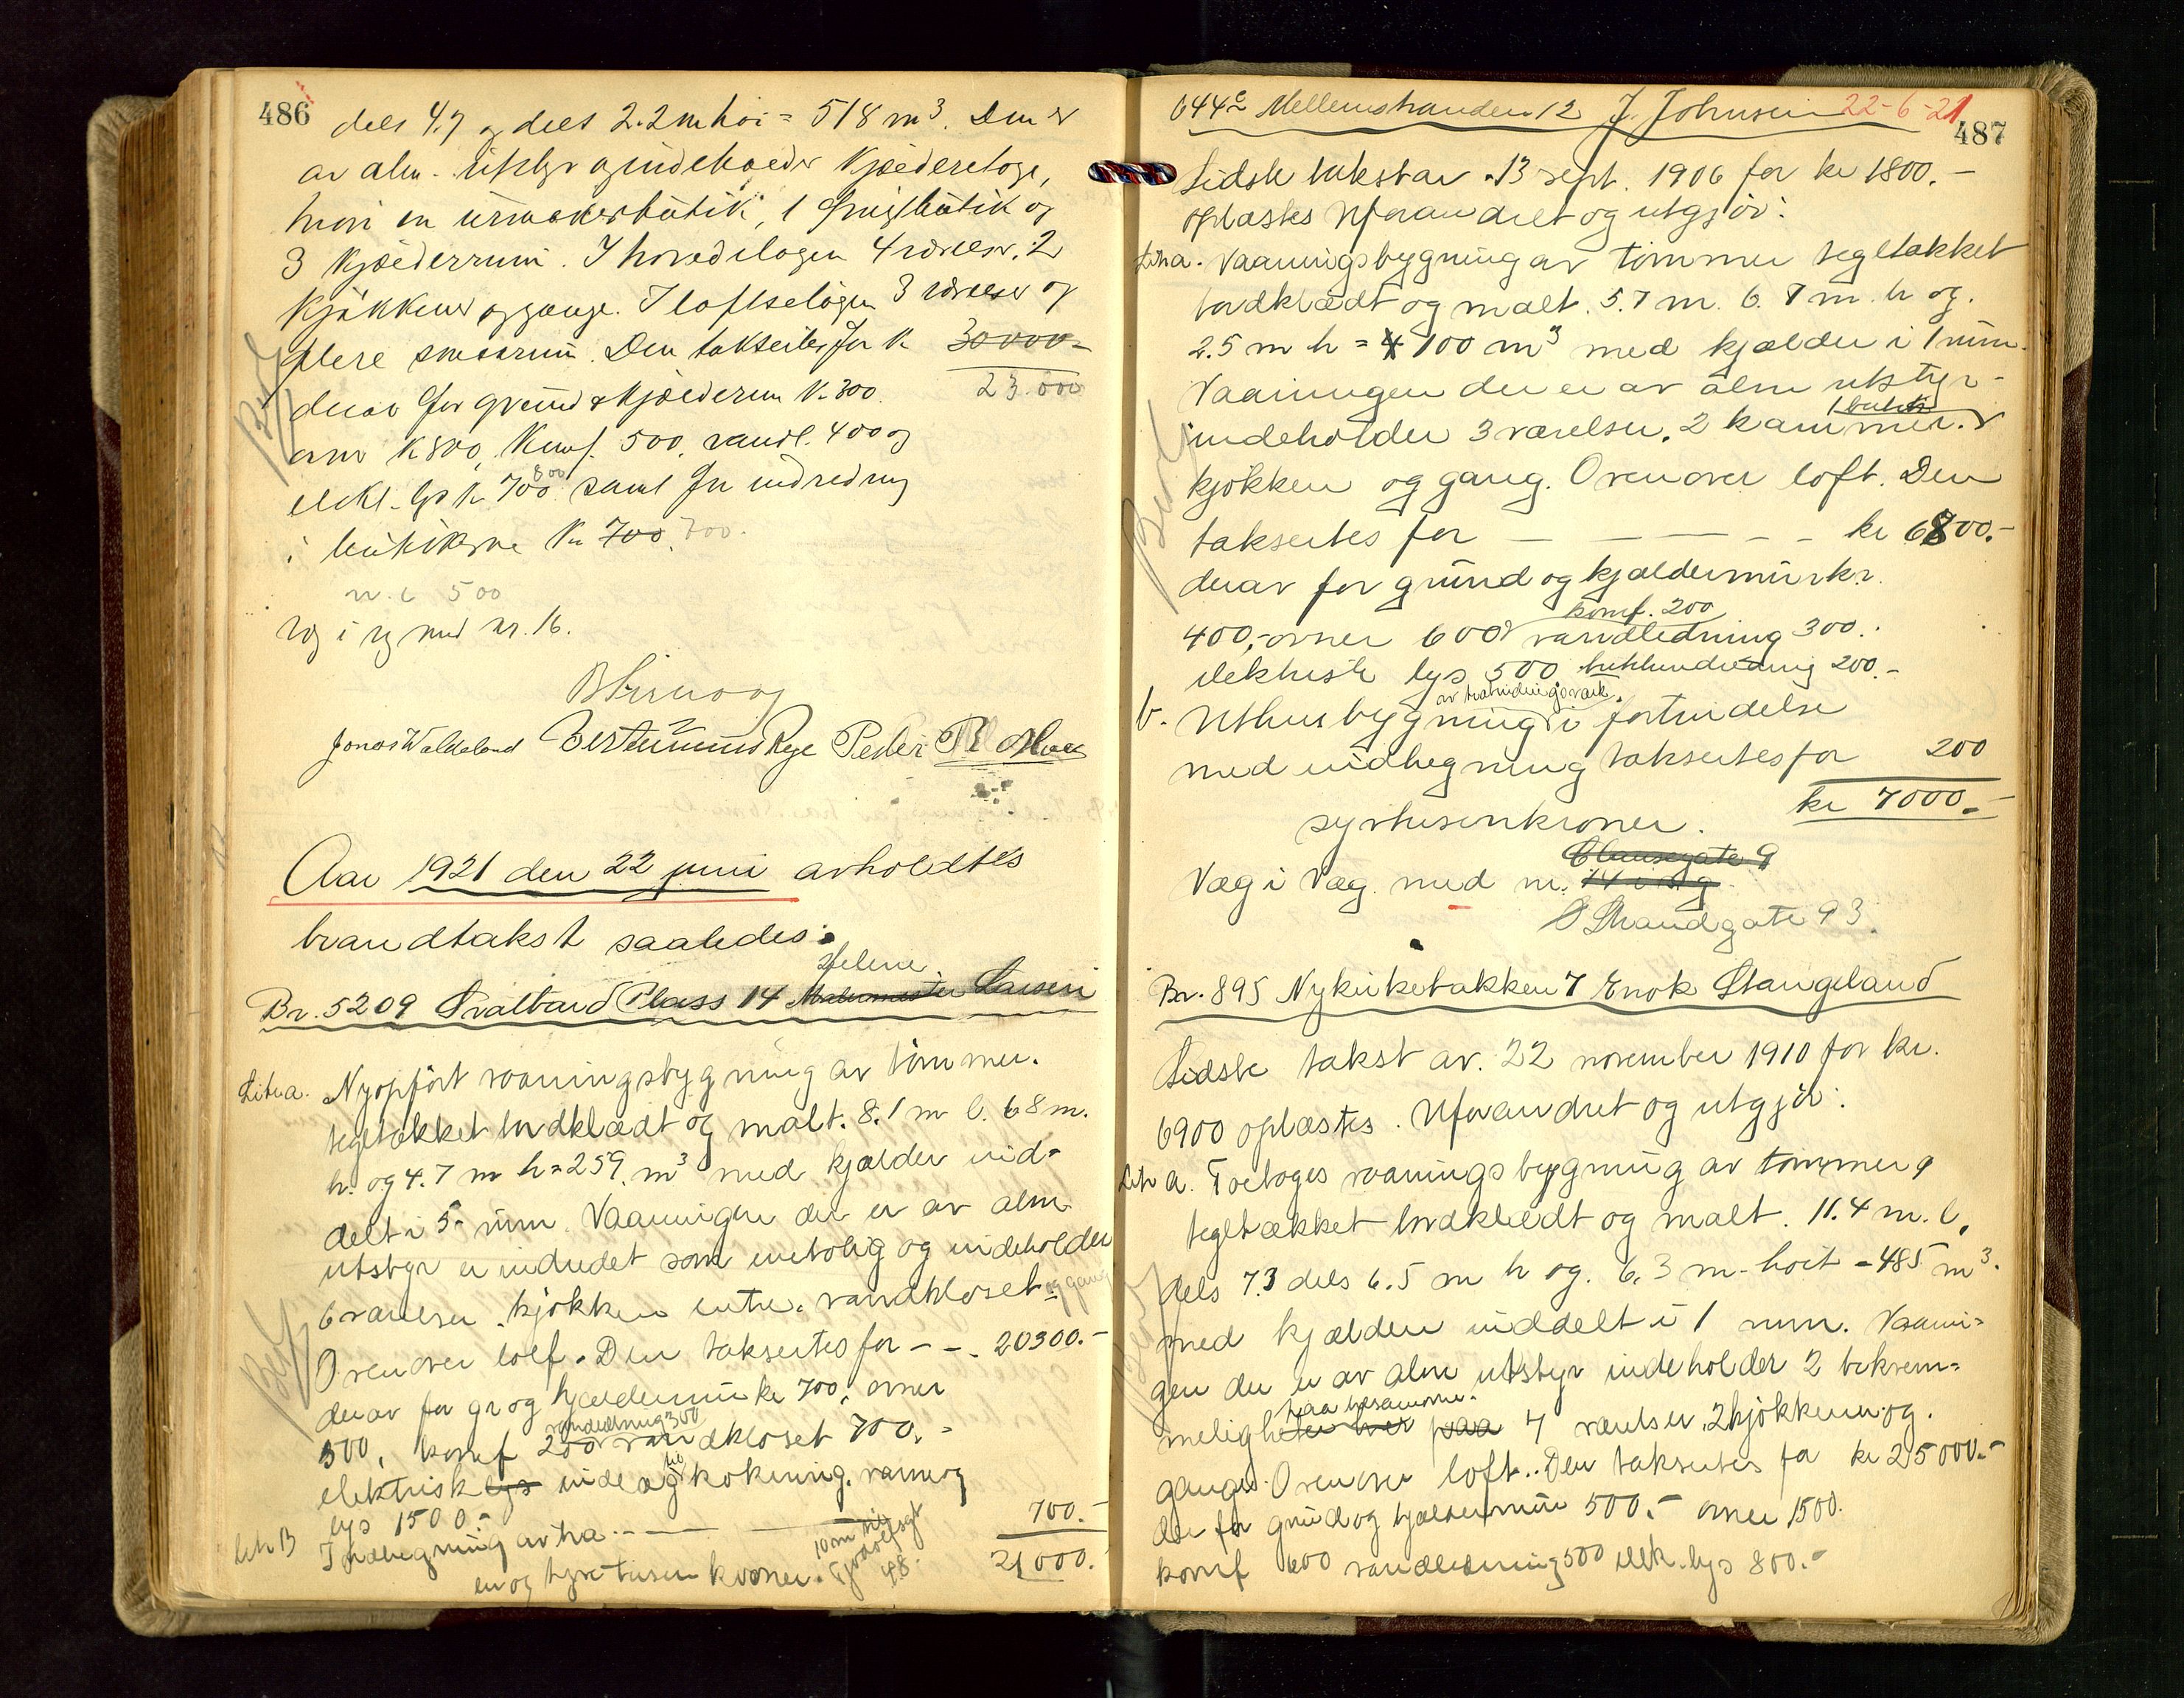 486
dels 4.7 og dels 2.2 m höi = 518 m³. Den er
av alm. utstyr og indeholder Kjælderetage,
hvori en urmakerbutik, 1 butik og
3 kjælderrum. I hovedetagen 4 værelser, 2
kjøkkener og gange. I loftsetagen 3 værelser og
flere smaarum. Den takseres for k 30000.-
derav for grund & kjælderm K. 300. 23.000
ovne K 800, Komf. 500, vandl. 400 og
elekt. lys k 700 800 samt for indredning
i butikerne Kr 700. 700.
w.c 500
væg i væg med nr. 16.
Jonas Waldeland Bertinius Rege Peder
Aar 1921 den 22 juni avholdtes
brandtakst saaledes:
Helene
Br. 5209 Svalbard Plass 14 Malermester Larsen
Litr a. Nyopfört vaaningsbygning av tömmer.
tegltækket bordklædt og malt. 8.1 m l. 6.8 m.
br. og 4.7 m h = 259. m³ med kjælder ind-
delt i 5 rum. Vaaningen der er av alm.
utstyr er indredet som enebolig og indeholder
6 værelser, kjökken entre, vandkloset og gang
Ovenover loft. Den taksertes for - - 20300.-
derav for gr og kjældermur kr 700, ovner
vandledning 300
500, komf 200 vandkloset 700.-
til
elektrisk lys inde og kokning. varme og
lys 1500.-
litr B Indhegning av træ - - 700.-
10 m til Tjodolfsgt 48.
en og tyve tusen kroner. 21000.
644c Mellemstranden 12 J. Johnsen 22-6-21
487
Sidste takst av 13 sept. 1906 for kr 1800.-
oplæstes Uforandret og utgjør:
Litr a. Vaaningsbygning av tömmer tegltækket
bordklædt og malt. 5.7 m. l. 7 m. br og.
2.5 m h = 100 m³ med kjælder i 1 rum.
Vaaningen der er av alm utstyr-
1 butik
indeholder 3 værelser, 2 kammer. &
kjökken og gang. Ovenover loft. Den
taksertes for - - - - - kr 6800.-
derav for grund og kjældermur kr.
komf. 200
400,- ovner 600 vandledning 300.
elektrisk lys 500 butikindredning 200.-
av utvendingsværk.
b. Uthusbygning i fortindelse
med indhegning taksertes for 200
kr 7000.-
syvtusenkroner.
Clausegate 9
Væg i Væg. med nr. 14 i sig
Ø Strandgate 93.
Br. 895 Nykirkebakken 7 Enok Stangeland
Sidste takst av 22 november 1910 for kr.
6900 oplæstes. Uforandret og utgjör:
Litr a. Toetages vaaningsbygning av tømmer
tegltækket bordklædt og malt. 11.4 m. l.
dels 7.3 dels 6.5 m br og. 6.3 m. höit = 485 m³.
med kjælder inddelt i 1 rum. Vaanin-
gen der er av alm utstyr indeholder 2 bekvem-
paa tilsammen.
meligheter hver paa 7 værelser, 2 kjøkkener og.
ganger. Ovenover loft. Den taksertes for kr 25000.-
der for grund og kjældermur 500.- ovner 1500.
komf 600 vandledning 500 elek. lys 800.-